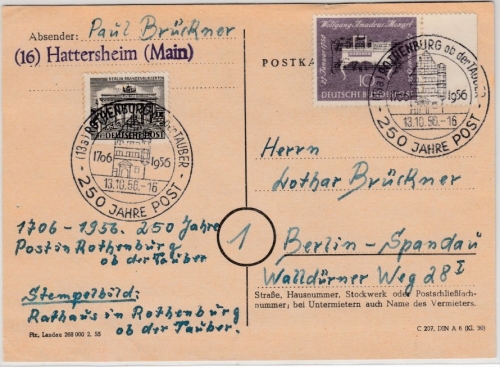 Absender: Paul Brückner
(16) Hattersheim (Main)
POSTKA
BERLIN
DEUTSCHE POST
(13a) ROTHENBURG ob der TAUBER
1706 1956
13.10.56.-16
- 250 JAHRE POST -
Wolfgang Amadeus Mozart
10
DEUTSCHE BUNDESPOST
ROTHENBURG ob der TAUBER
1956
13.10.56.-16
250 JAHRE POST -
Herrn
Lothar Brückner
1
Berlin-Spandau
Walldürner Weg 28 I
Straße, Hausnummer, Stockwerk oder Postschließfach-
nummer; bei Untermietern auch Name des Vermieters.
1706-1956. 250 Jahre
Post in Rothenburg
ob der Tauber
Stempelbild:
Rathaus in Rothenburg
ob der Tauber.
Ptr, Landau 268 000 2. 55
C 207, DIN A 6 (Kl. 30)